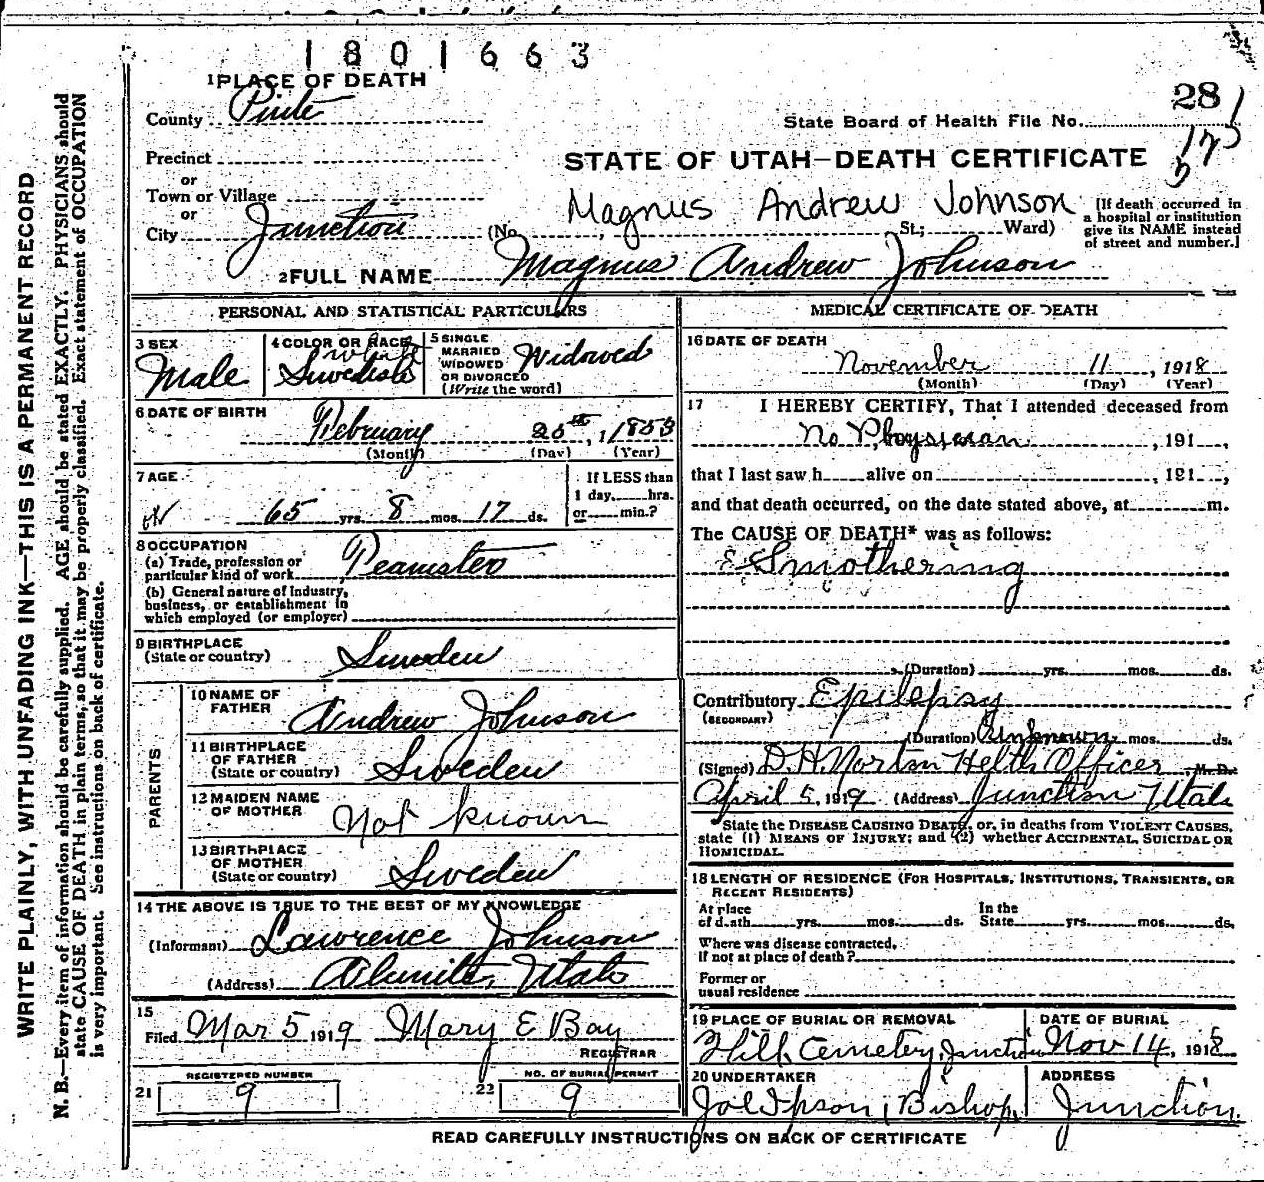 1801663
1 PLACE OF DEATH
County Piute
281
State Board of Health File No.
Precinct
STATE OF UTAH—DEATH CERTIFICATE
or
Town or Village
or
Magnus Andrew Johnson
[If death occurred in a hospital or institution give its NAME instead of street and number.]
City Junction (No. St.; Ward)
2 FULL NAME Magnus Andrew Johnson
PERSONAL AND STATISTICAL PARTICULARS
3 SEX
Male
4 COLOR OR RACE
white
Swedish
5 SINGLE
MARRIED
WIDOWED
OR DIVORCED
(Write the word)
Widowed
6 DATE OF BIRTH
February 25th, 1 1853
(Month) (Day) (Year)
7 AGE
65 yrs. 8 mos. 17 ds.
If LESS than
1 day, hrs.
or min.?
8 OCCUPATION
(a) Trade, profession or
particular kind of work Teamster
(b) General nature of Industry,
business, or establishment in
which employed (or employer)
9 BIRTHPLACE
(State or country) Sweden
PARENTS
10 NAME OF
FATHER Andrew Johnson
11 BIRTHPLACE
OF FATHER
(State or country) Sweden
12 MAIDEN NAME
OF MOTHER Not known
13 BIRTHPLACE
OF MOTHER
(State or country) Sweden
14 THE ABOVE IS TRUE TO THE BEST OF MY KNOWLEDGE
(Informant) Lawrence Johnson
(Address) Alunite, Utah
15
Filed Mar 5 1919 Mary E Bay
REGISTRAR
REGISTERED NUMBER
21 9
NO. OF BURIAL PERMIT
22 9
MEDICAL CERTIFICATE OF DEATH
16 DATE OF DEATH
November 11, 1918
(Month) (Day) (Year)
17 I HEREBY CERTIFY, That I attended deceased from
No Physician, 191 ,
that I last saw h alive on , 191 ,
and that death occurred, on the date stated above, at m.
The CAUSE OF DEATH* was as follows:
Smothering
(Duration) yrs. mos. ds.
Contributory Epilepsy
(SECONDARY)
(Duration) Unknown mos. ds.
(Signed) D.H. Morton Helth Officer, M. D.
April 5, 1919 (Address) Junction Utah
*State the DISEASE CAUSING DEATH, or, in deaths from VIOLENT CAUSES,
state (1) MEANS OF INJURY; and (2) whether ACCIDENTAL, SUICIDAL OR
HOMICIDAL.
18 LENGTH OF RESIDENCE (FOR HOSPITALS, INSTITUTIONS, TRANSIENTS, OR
RECENT RESIDENTS)
At place
of death yrs. mos. ds.
In the
State yrs. mos. ds.
Where was disease contracted,
If not at place of death?
Former or
usual residence
19 PLACE OF BURIAL OR REMOVAL
Hill Cemetery, Junction
DATE OF BURIAL
Nov 14, 1918
20 UNDERTAKER
Joe Ipson, Bishop,
ADDRESS
Junction.
READ CAREFULLY INSTRUCTIONS ON BACK OF CERTIFICATE
WRITE PLAINLY, WITH UNFADING INK—THIS IS A PERMANENT RECORD
N. B.—Every item of information should be carefully supplied. AGE should be stated EXACTLY. PHYSICIANS should
state CAUSE OF DEATH in plain terms, so that it may be properly classified. Exact statement of OCCUPATION
is very important. See instructions on back of certificate.